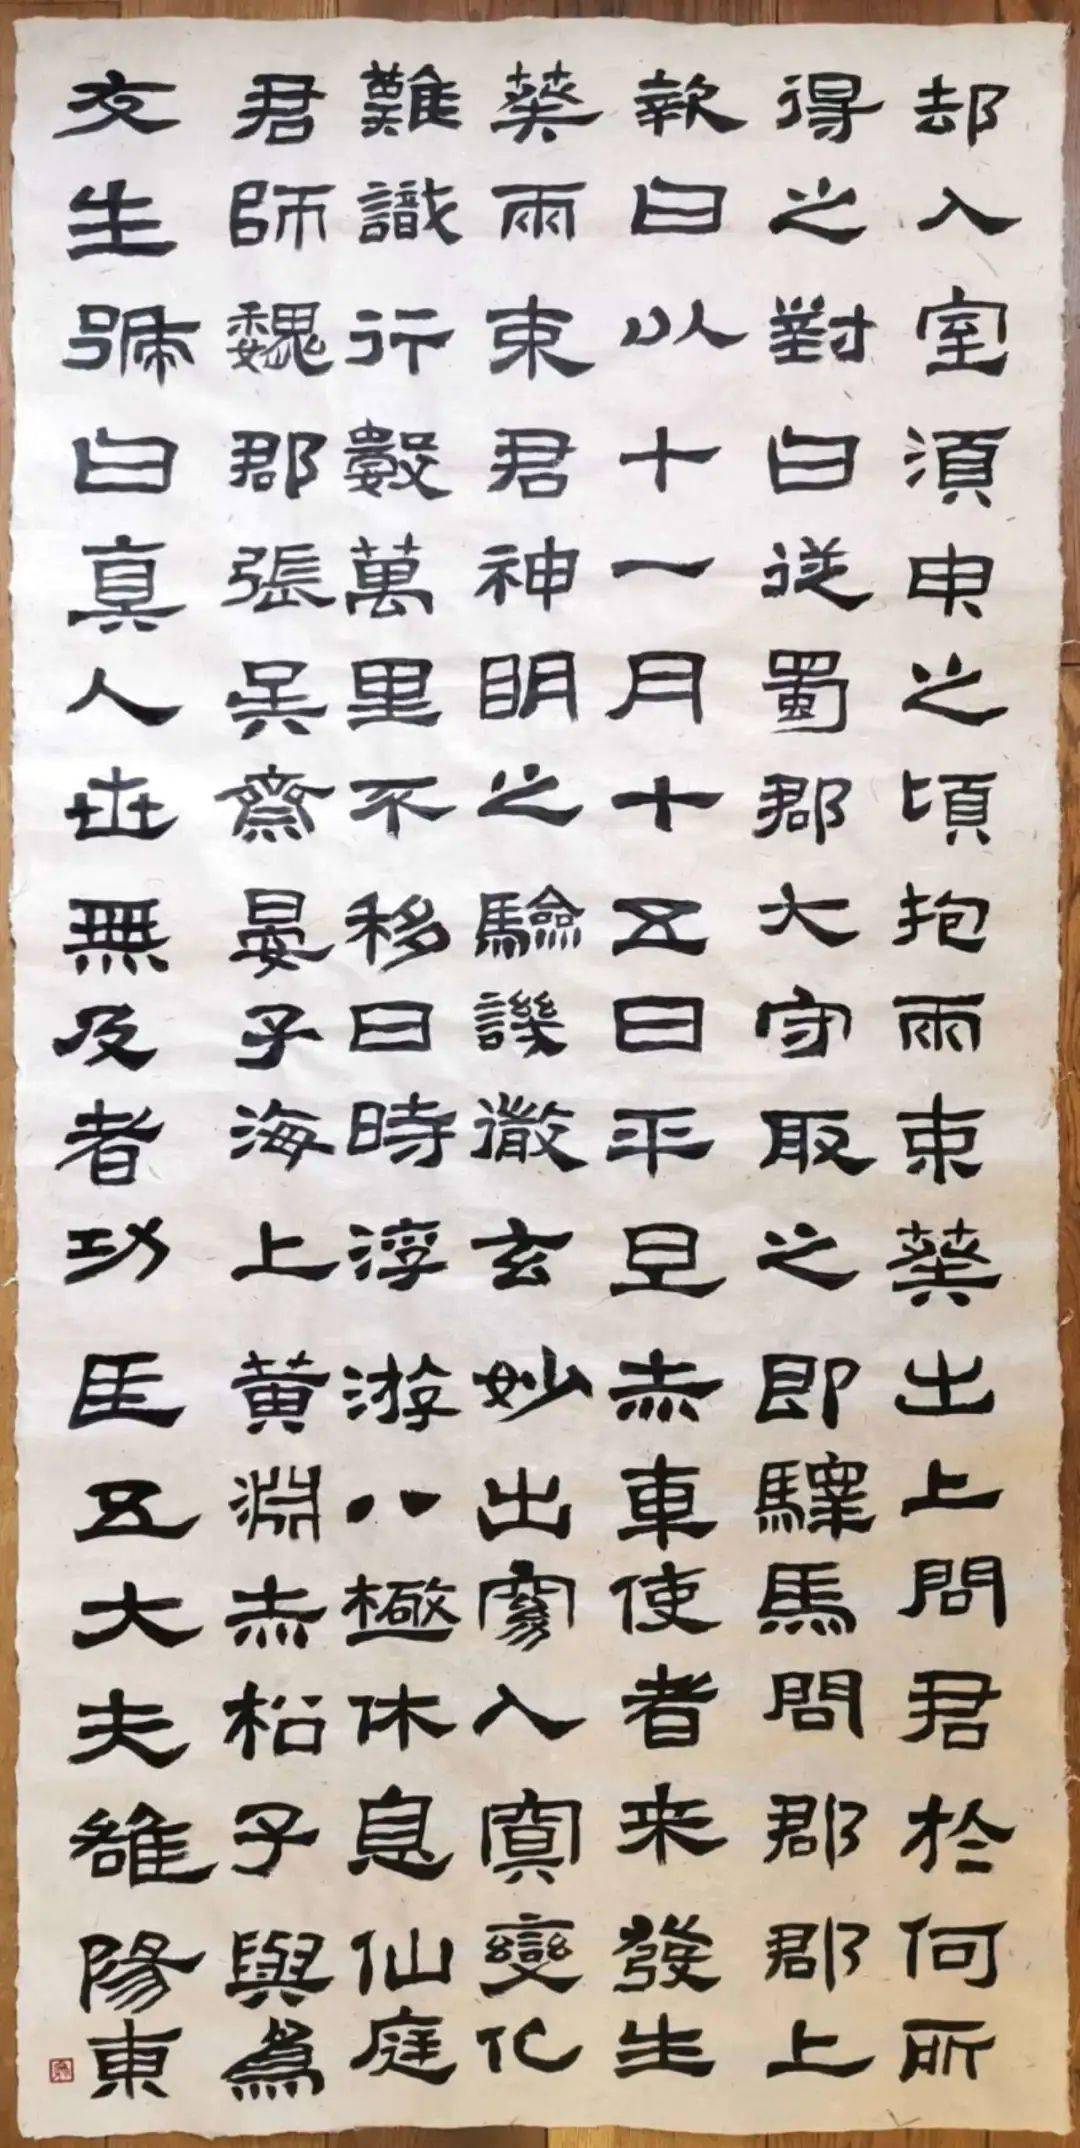 却入室須臾之頃抱兩束葵出上問君於何所
得之對曰從蜀郡大守取之即驛馬問郡郡上
報曰以十一月十五日平旦赤車使者来發生
葵兩束君神明之驗譏徹玄妙出窈入冥變化
難識行數萬里不移日時浮游八極休息仙庭
君師魏郡張吳齋晏子海上黃淵赤松子與為
友生號曰真人世無及者功臣五大夫雒陽東